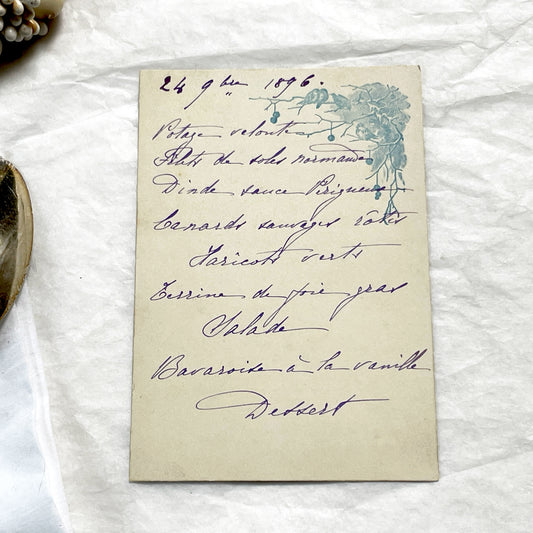 24 9bre 1896.
Potage velouté
Filets de soles normande
Dinde sauce Périgueux
Canards sauvages rôtis
Haricots verts
Terrine de foie gras
Salade
Bavaroise à la vanille
Dessert